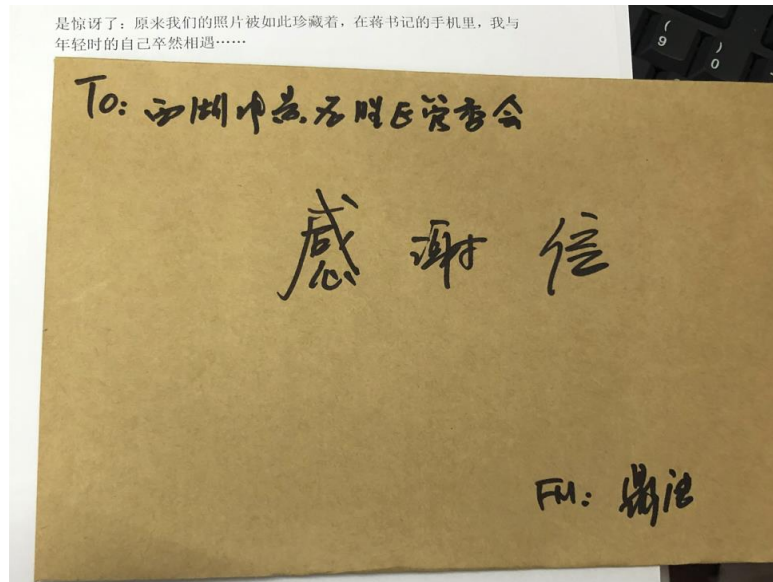 是惊讶了：原来我们的照片被如此珍藏着，在蒋书记的手机里，我与
年轻时的自己卒然相遇……
(
9
)
0
To: 西湖风景名胜区管委会
感谢信
FM: